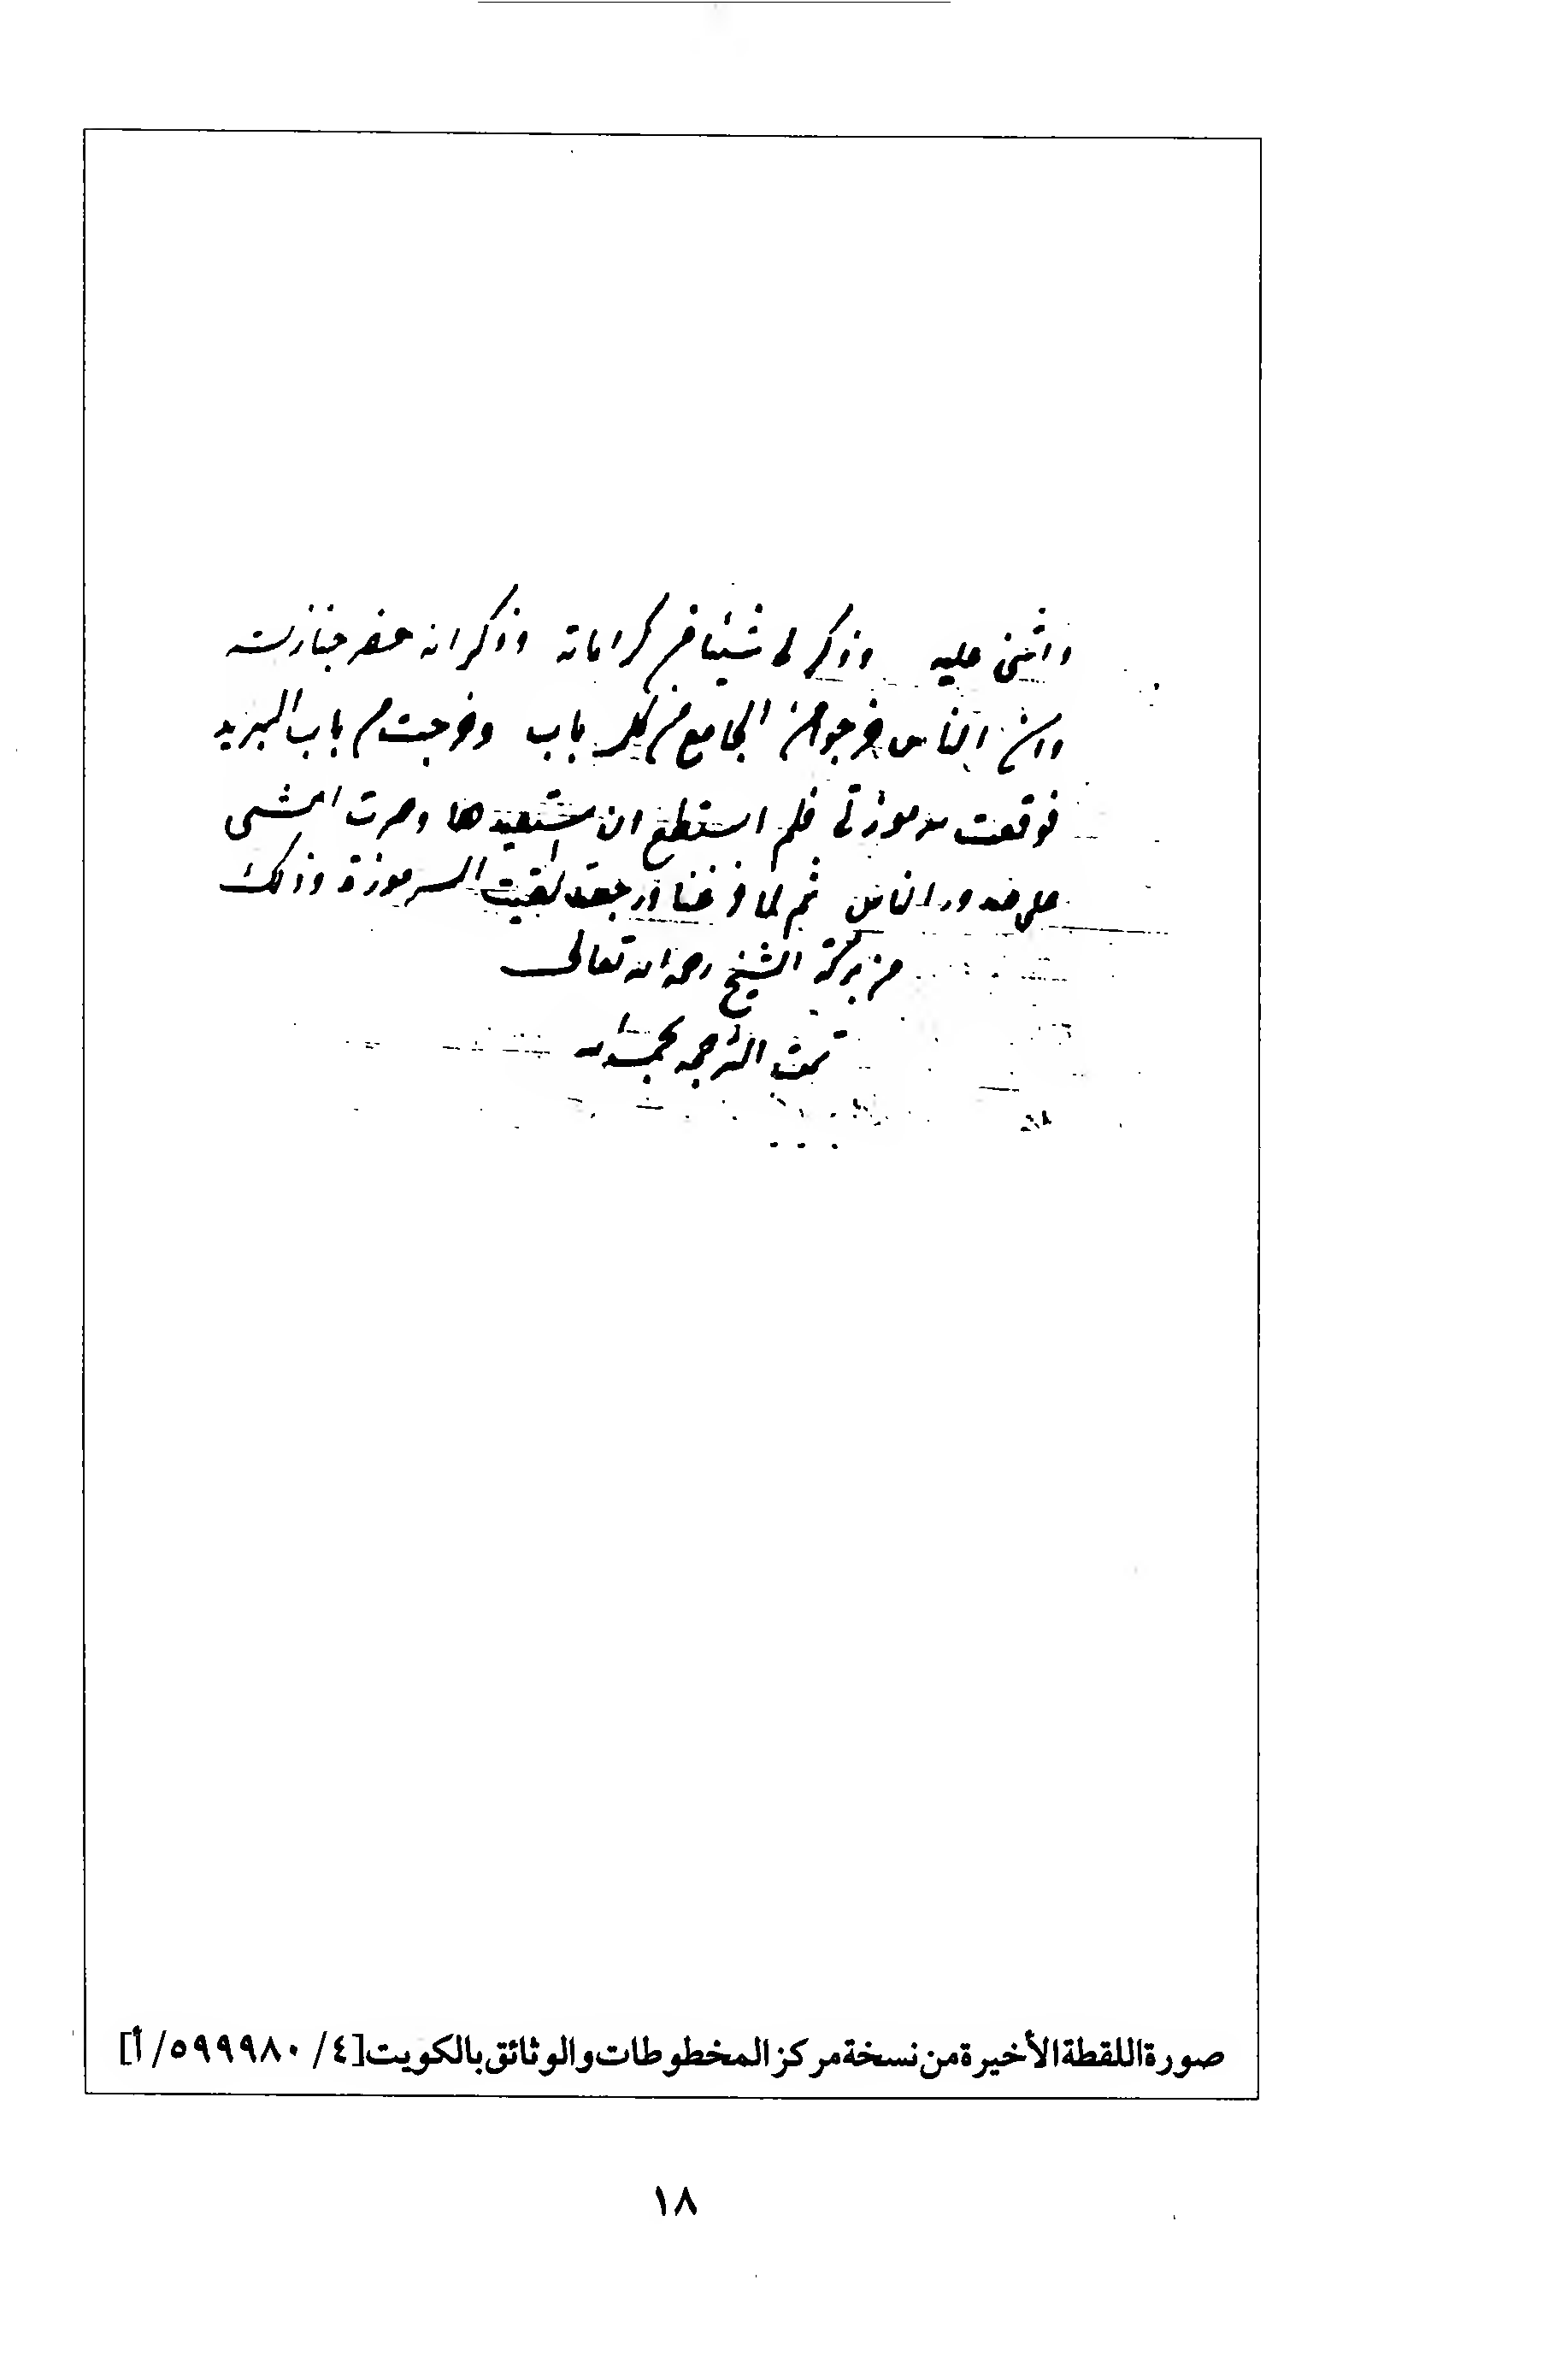 واثنى عليه وذكر لي شيئا من كراماته وذكر انه حضر جنازته
وان الناس خرجوا من الجامع من كل باب وخرجت من باب البريد
فوقعت سرموزتي فلم استطع ان استعيدها وصرت امشي
على صدور الناس ثم لما فرغنا ورجعت لقيت السرموزة وذلك
من بركة الشيخ رحمه الله تعالى
تمت الترجمه بحمد الله
صورة اللقطة الأخيرة من نسخة مركز المخطوطات والوثائق بالكويت [٤/ ٥٩٩٩٨٠/ أ]
١٨